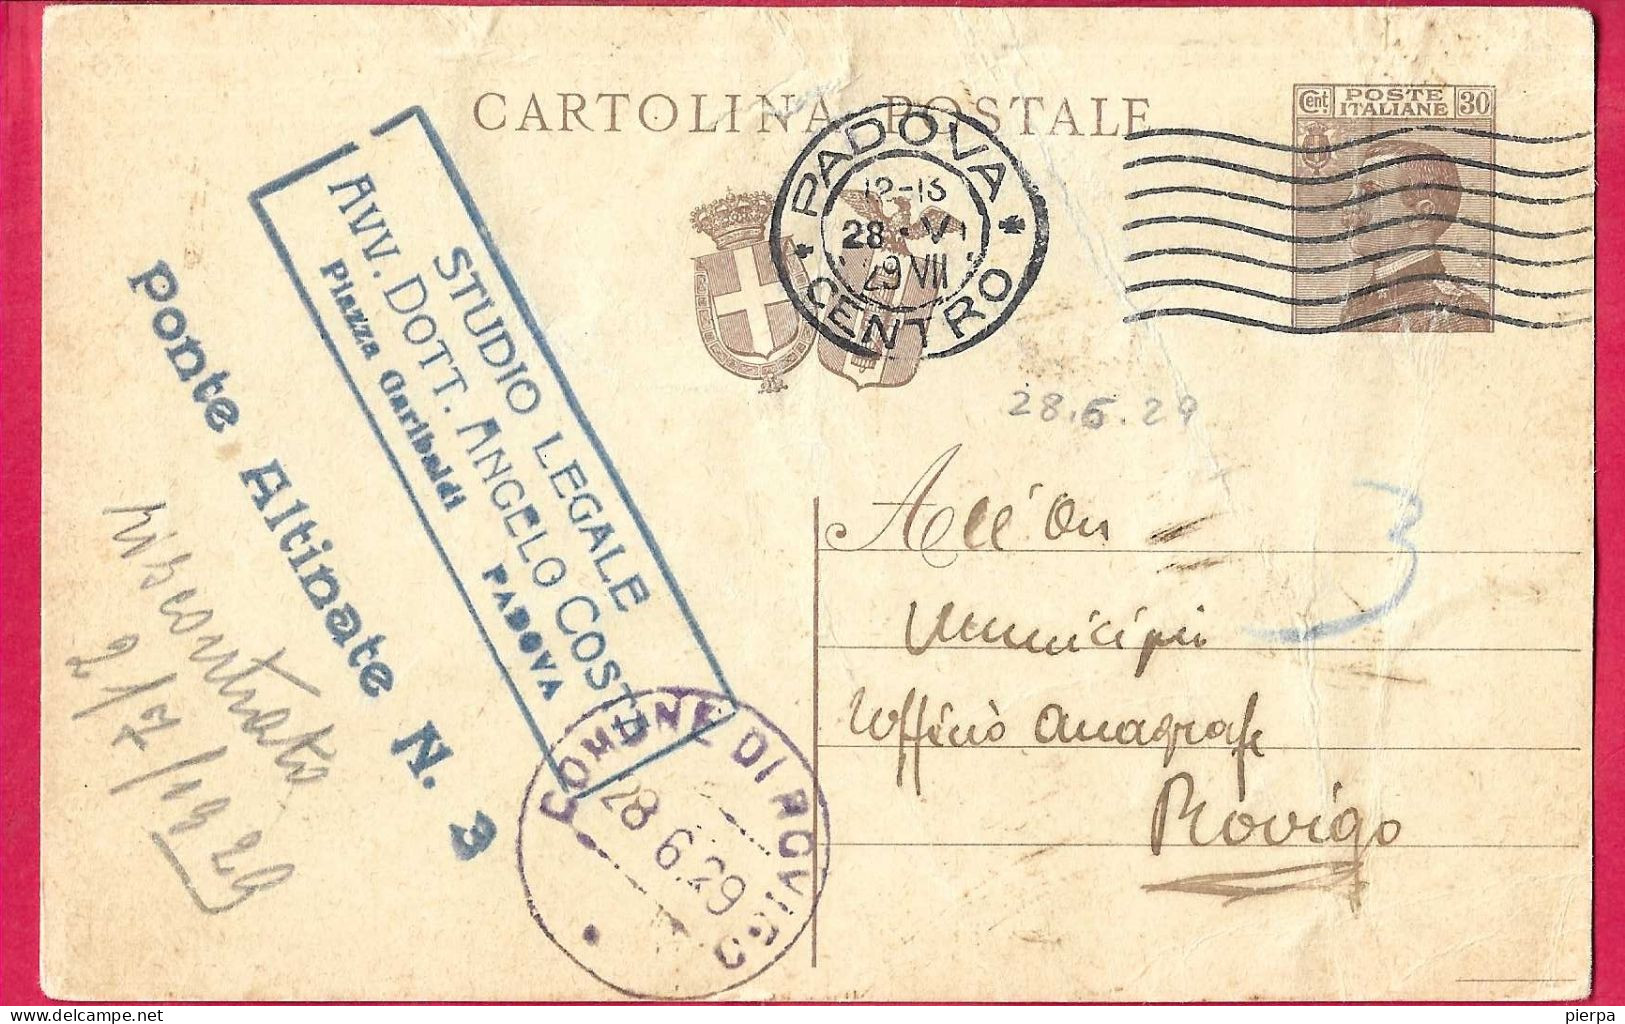 CARTOLINA POSTALE
Cent. POSTE ITALIANE 30
PADOVA CENTRO
12-13
28 · VI
29 VII
28.6.29
STUDIO LEGALE
AVV. DOTT. ANGELO COSTA
Piazza Garibaldi PADOVA
Ponte Altinate N. 3
riscontrato
2/7/1929
COMUNE DI ROVIGO
28 6.29
3
All'On
Municipio
Ufficio anagrafe
Rovigo
pierpa